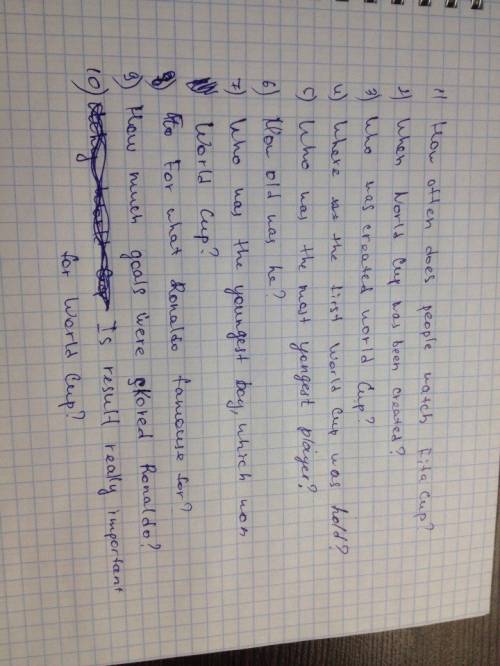 1) How often does people watch Fifa Cup?
2) When World Cup has been created?
3) Who was created world Cup?
4) Where the first World Cup was hold?
5) Who was the most yongest player?
6) How old was he?
7) Who was the youngest boy, which won
World Cup?
8) For what Ronaldo famouse for?
9) How much goals were skored Ronaldo?
10) Is result really important
for World Cup?